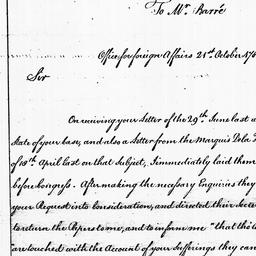 To Mr. Barré
Office for foreign Affairs 21st October 178
Sir
On receiving your Letter of the 29th June last a
State of your case, and also a Letter from the Marquis Dela
of 18th April last on that Subject, I immediately laid them
before Congress. After making the necessary Enquiries they
your Request into Consideration, and directed their Secre
to return the Papers to me, and to inform me "that tho'
are touched with the Account of your Sufferings they can